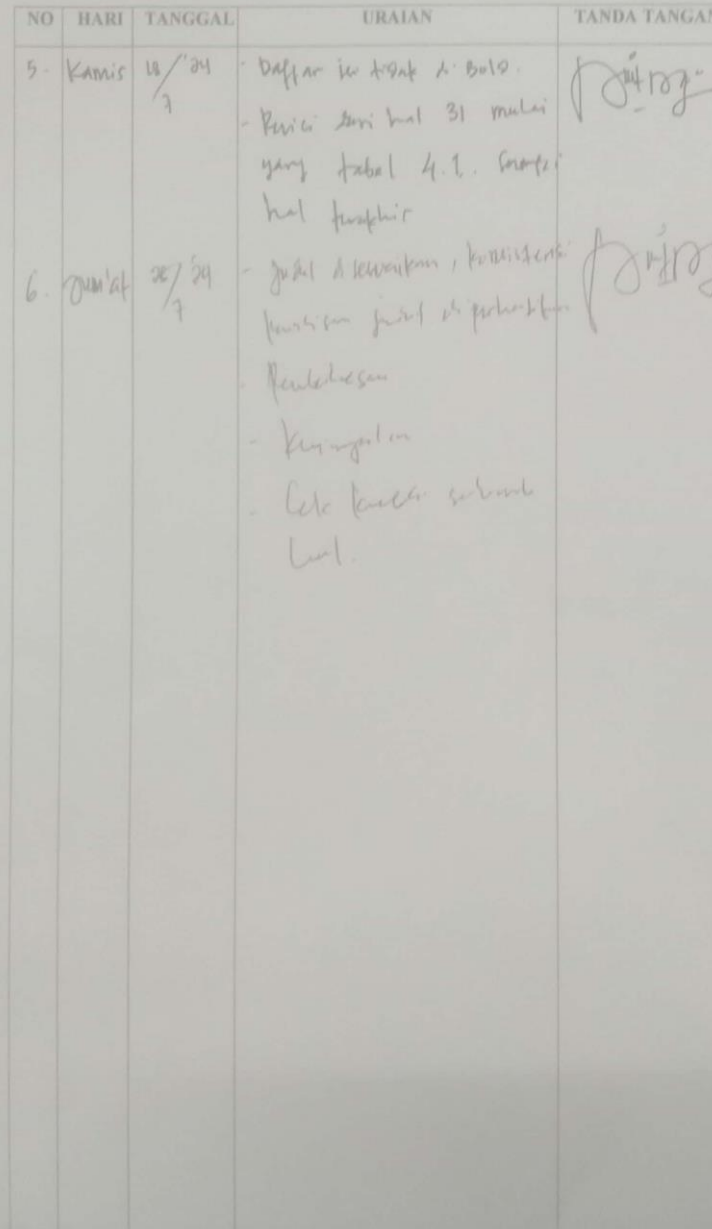 NO HARI TANGGAL URAIAN TANDA TANGAN
5. Kamis 18/7 '24 - Daftar isi tidak di Bold.
- Revisi dari hal 31 mulai
yang tabel 4.1. sampai
hal terakhir
6. Jum'at 26/7 '24 - Judul disesuaikan, konsistensi
penulisan judul diperhatikan
- Pembahasan
- Kesimpulan
- Cek
hal.